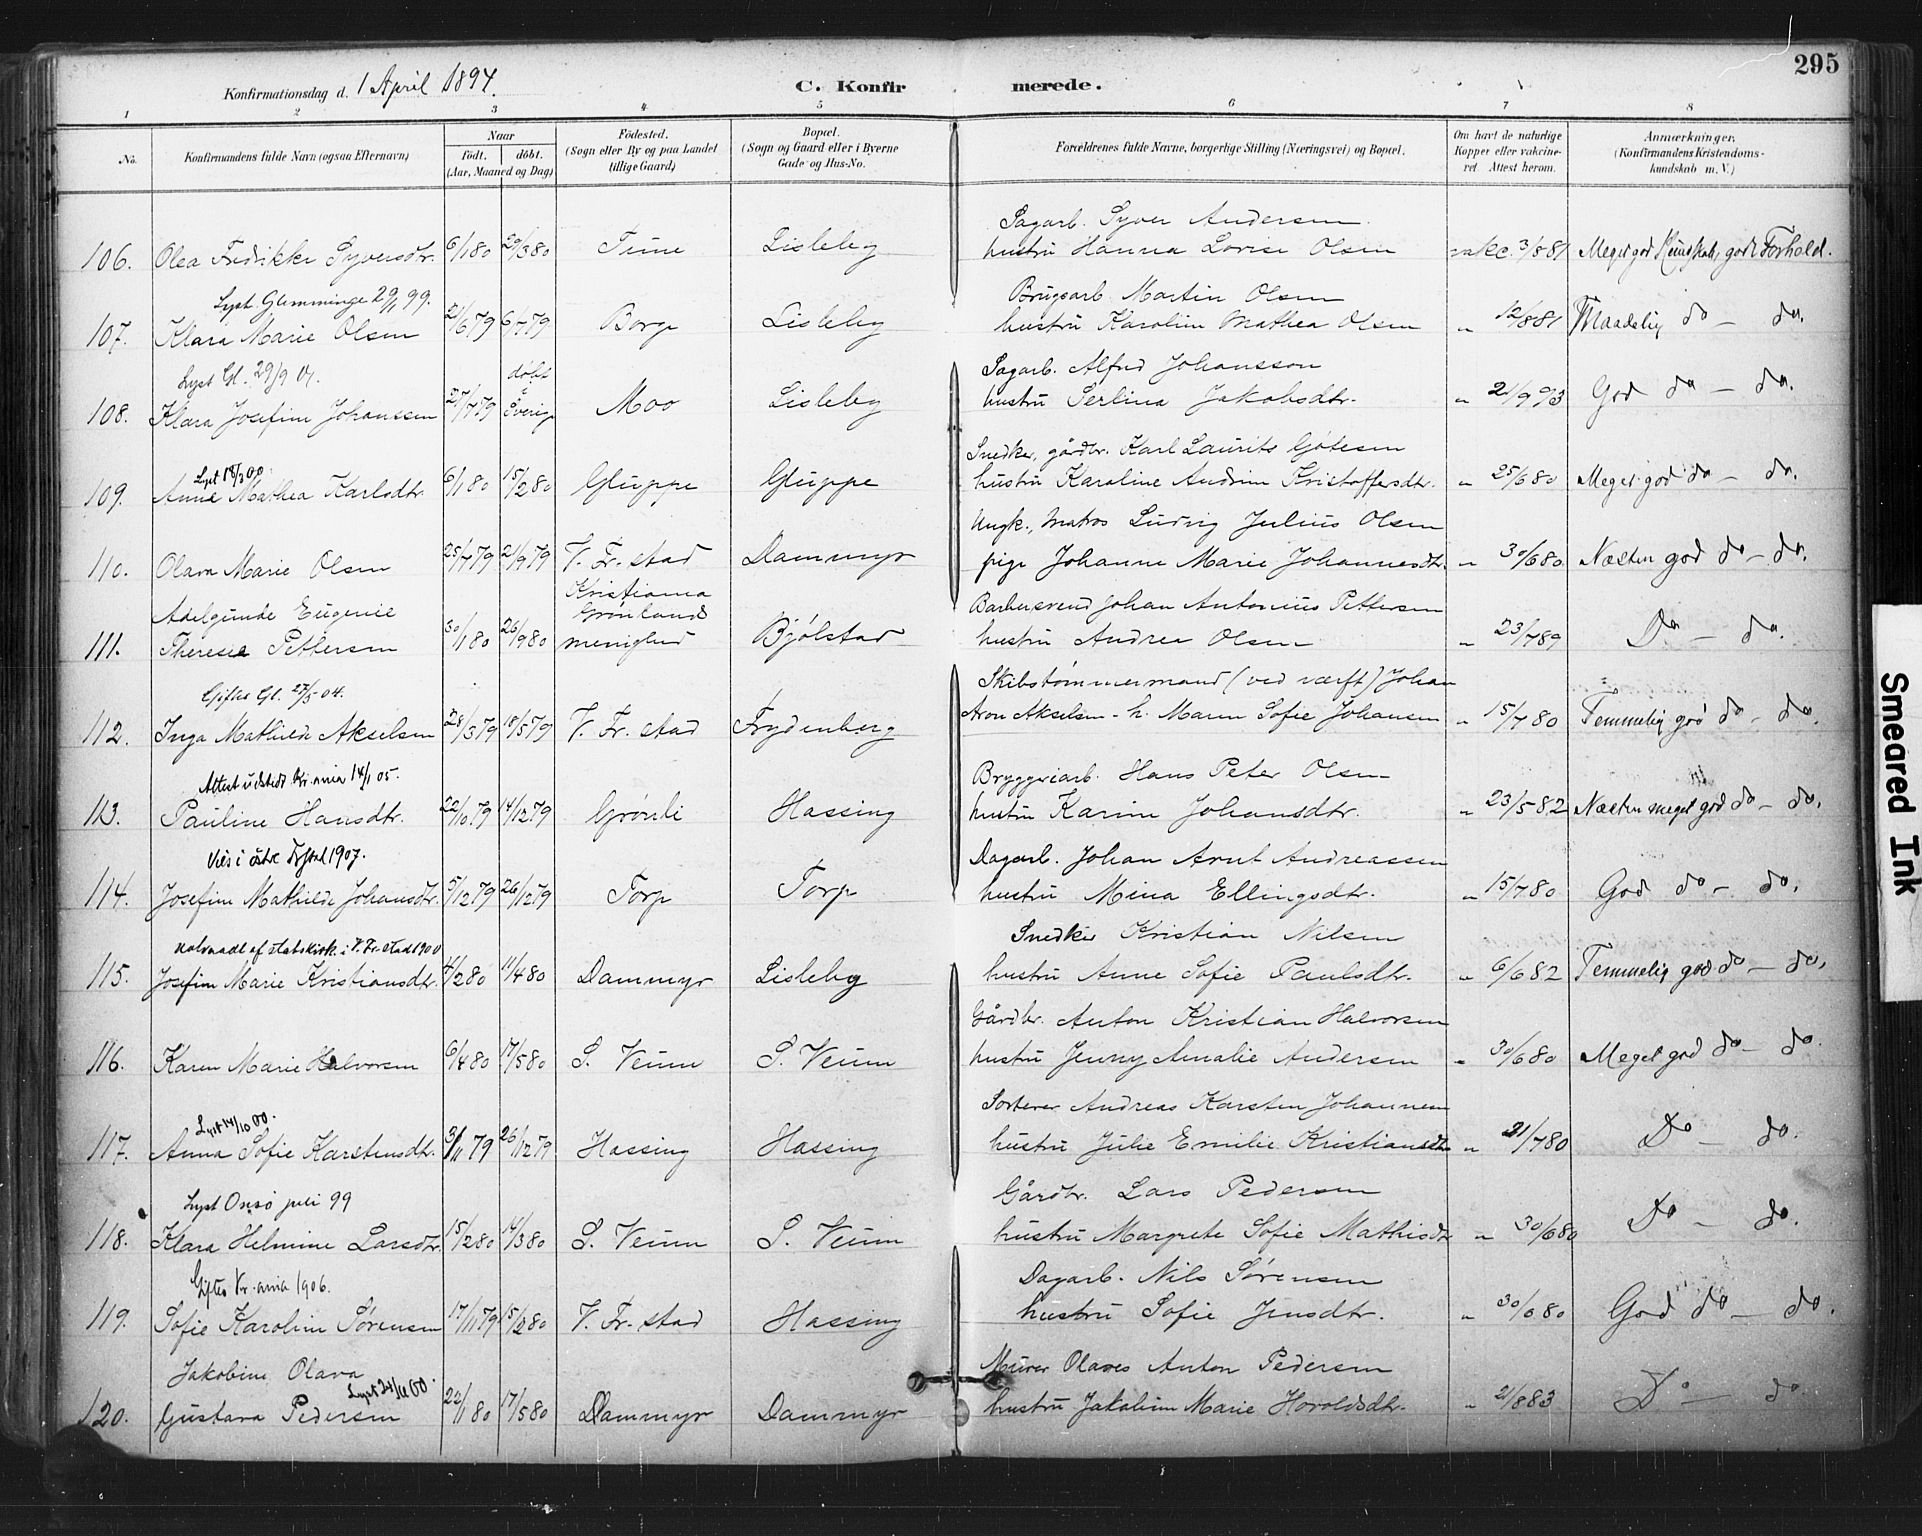 295
Konfirmationsdag d. 1 April 1894.
C. Konfirmerede.
1 2 3 4 5 6 7 8
No.
Konfirmandens fulde Navn (ogsaa Efternavn)
Naar
födt. döbt.
(Aar, Maaned og Dag)
Födested.
(Sogn eller By og paa Landet
tillige Gaard)
Bopæl.
(Sogn og Gaard eller i Byerne
Gade og Hus-No.
Forældrenes fulde Navne, borgerlige Stilling (Næringsvei) og Bopæl.
Om havt de naturlige
Kopper eller vakcine-
ret Attest herom.
Anmærkninger.
(Konfirmandens Kristendoms-
kundskab m. V.)
Sagarb. Syver Andersen
106. Olea Fredrikke Syversdtr. 6/1 80 29/3 80 Tune Lisleby hustru Hanna Lovise Olsen vakc. 3/8 81 Meget god Kundskab, godt Forhold.
Lyst Glemminge 29/1 99. Brugsarb. Martin Olsen
107. Klara Marie Olsen 21/6 79 6/7 79 Borge Lisleby hustru Karoline Mathea Olsen " 12/8 81 Maadelig do - do.
Lyst Gl. 29/9 01. Sagarb. Alfred Johansson
108. Klara Josefine Johanssen 27/7 79 døbt i Sverige Moo Lisleby hustru Serlina Jakobsdtr. " 21/9 93 God do - do.
Lyst 18/3 00. Snedker, gårdbr. Karl Laurits Götesen
109. Anne Mathea Karlsdtr. 6/1 80 15/2 80 Gluppe Gluppe hustru Karoline Andrine Kristoffersdtr. " 25/6 80 Meget god do - do.
Ungk., matros Ludvig Julius Olsen
110. Olava Marie Olsen 25/7 79 21/9 79 V. Fr. stad Dammyr pige Johanne Marie Johannesdtr. " 30/6 80 Næsten god do - do.
Adelgunde Eugenie Kristiania Grønlands Barbersvend Johan Antonius Pettersen
111. Therese Pettersen 30/1 80 26/9 80 menighed Bjölstad hustru Andrea Olsen " 23/7 89 Do - do.
Giftes Gl. 27/5 04. Skibstømmermand (ved værft) Johan
112. Inga Mathilde Akselsen 28/3 79 18/5 79 V. Fr. stad Frydenberg Aron Akselsen - h. Maren Sofie Johansen " 15/7 80 Temmelig god do - do.
Attest udstedt Kr.ania 14/1 05. Bryggeriarb. Hans Peter Olsen
113. Pauline Hansdtr. 22/10 79 14/12 79 Grönli Hassing hustru Karine Johansdtr. " 23/5 82 Næsten meget god do - do.
Dagarb. Johan Arnt Andreassen
114. Josefine Mathilde Johansdtr. 5/12 79 26/12 79 Torp Torp hustru Mina Ellingsdtr. " 15/7 80 God do - do.
af statskirk. i V. Fr. stad 1900 Snedker Kristian Nilsen
115. Josefine Marie Kristiansdtr. 4/2 80 11/4 80 Dammyr Lisleby hustru Anne Sofie Paulsdtr. " 6/6 82 Temmelig god do - do.
Gårdbr. Anton Kristian Halvorsen
116. Karen Marie Halvorsen 6/4 80 17/5 80 S. Veum S. Veum hustru Jenny Amalie Andersen " 30/6 80 Meget god do - do.
Lyst 14/10 00. Sorterer Andreas Karsten Johannesen
117. Anna Sofie Karstensdtr. 3/11 79 26/12 79 Hassing Hassing hustru Julie Emilie Kristiansdtr " 21/7 80 Do - do.
Lyst Onsö juli 99 Gårdbr. Lars Pedersen
118. Klara Helmine Larsdtr. 15/2 80 14/3 80 S. Veum S. Veum hustru Margrete Sofie Mathisdtr " 30/6 80 Do - do.
Giftes Kr.ania 1906. Dagarb. Nils Sørensen
119. Sofie Karoline Sørensen 17/11 79 15/2 80 V. Fr. stad Hassing hustru Sofie Jensdtr. " 30/6 80 God do - do.
Jakobine Olava Murer Olaves Anton Pedersen
120. Gustava Pedersen 22/1 80 17/5 80 Dammyr Dammyr hustru Jakobine Marie Haroldsdtr. " 21/8 83 Do - do
Smeared Ink